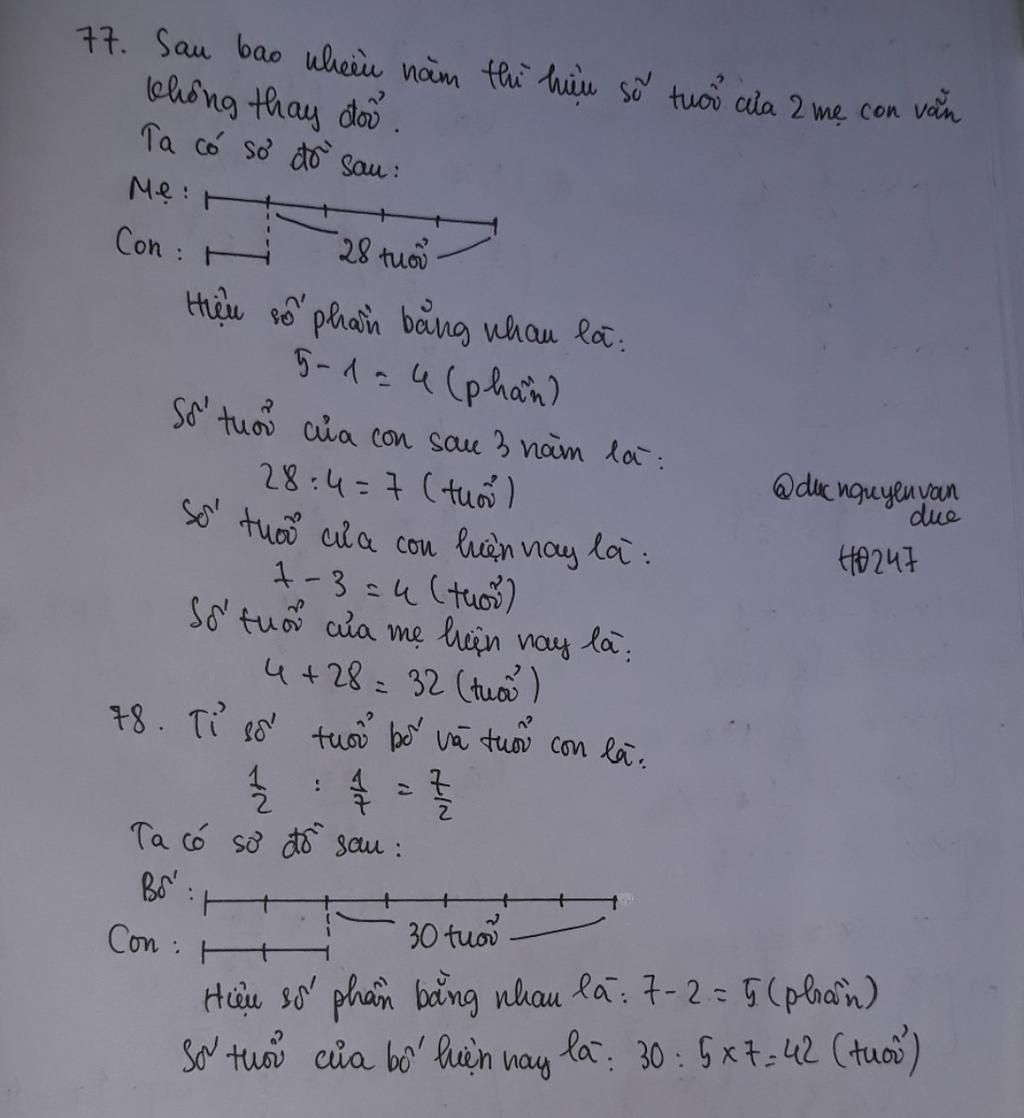 77. Sau bao nhiêu năm thì hiệu số tuổi của 2 mẹ con vẫn
không thay đổi.
Ta có sơ đồ sau:
Mẹ:
Con:
28 tuổi
Hiệu số phần bằng nhau là:
5 - 1 = 4 (phần)
Số tuổi của con sau 3 năm là:
28 : 4 = 7 (tuổi)
Số tuổi của con hiện nay là:
7 - 3 = 4 (tuổi)
Số tuổi của mẹ hiện nay là:
4 + 28 = 32 (tuổi)
@ducnguyenvan
duc
HĐ247
78. Tỉ số tuổi bố và tuổi con là:
1/2 : 1/7 = 7/2
Ta có sơ đồ sau:
Bố:
Con:
30 tuổi
Hiệu số phần bằng nhau là: 7 - 2 = 5 (phần)
Số tuổi của bố hiện nay là: 30 : 5 x 7 = 42 (tuổi)